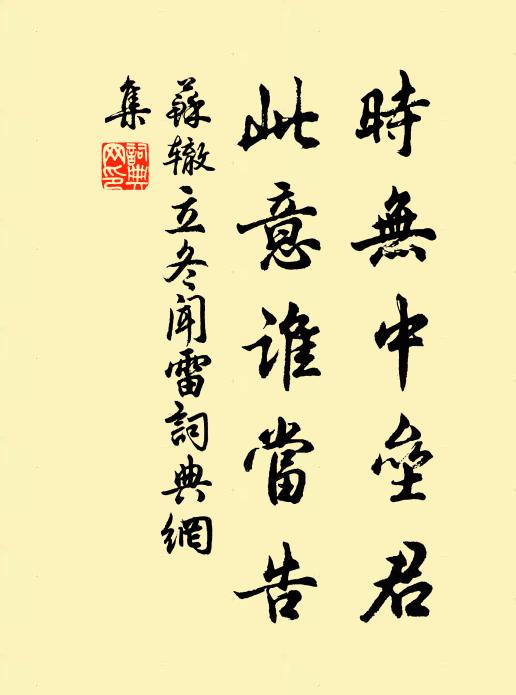 時無中壘君
此意誰當告
蘇辙立冬聞雷詞典網
集
詞典网印